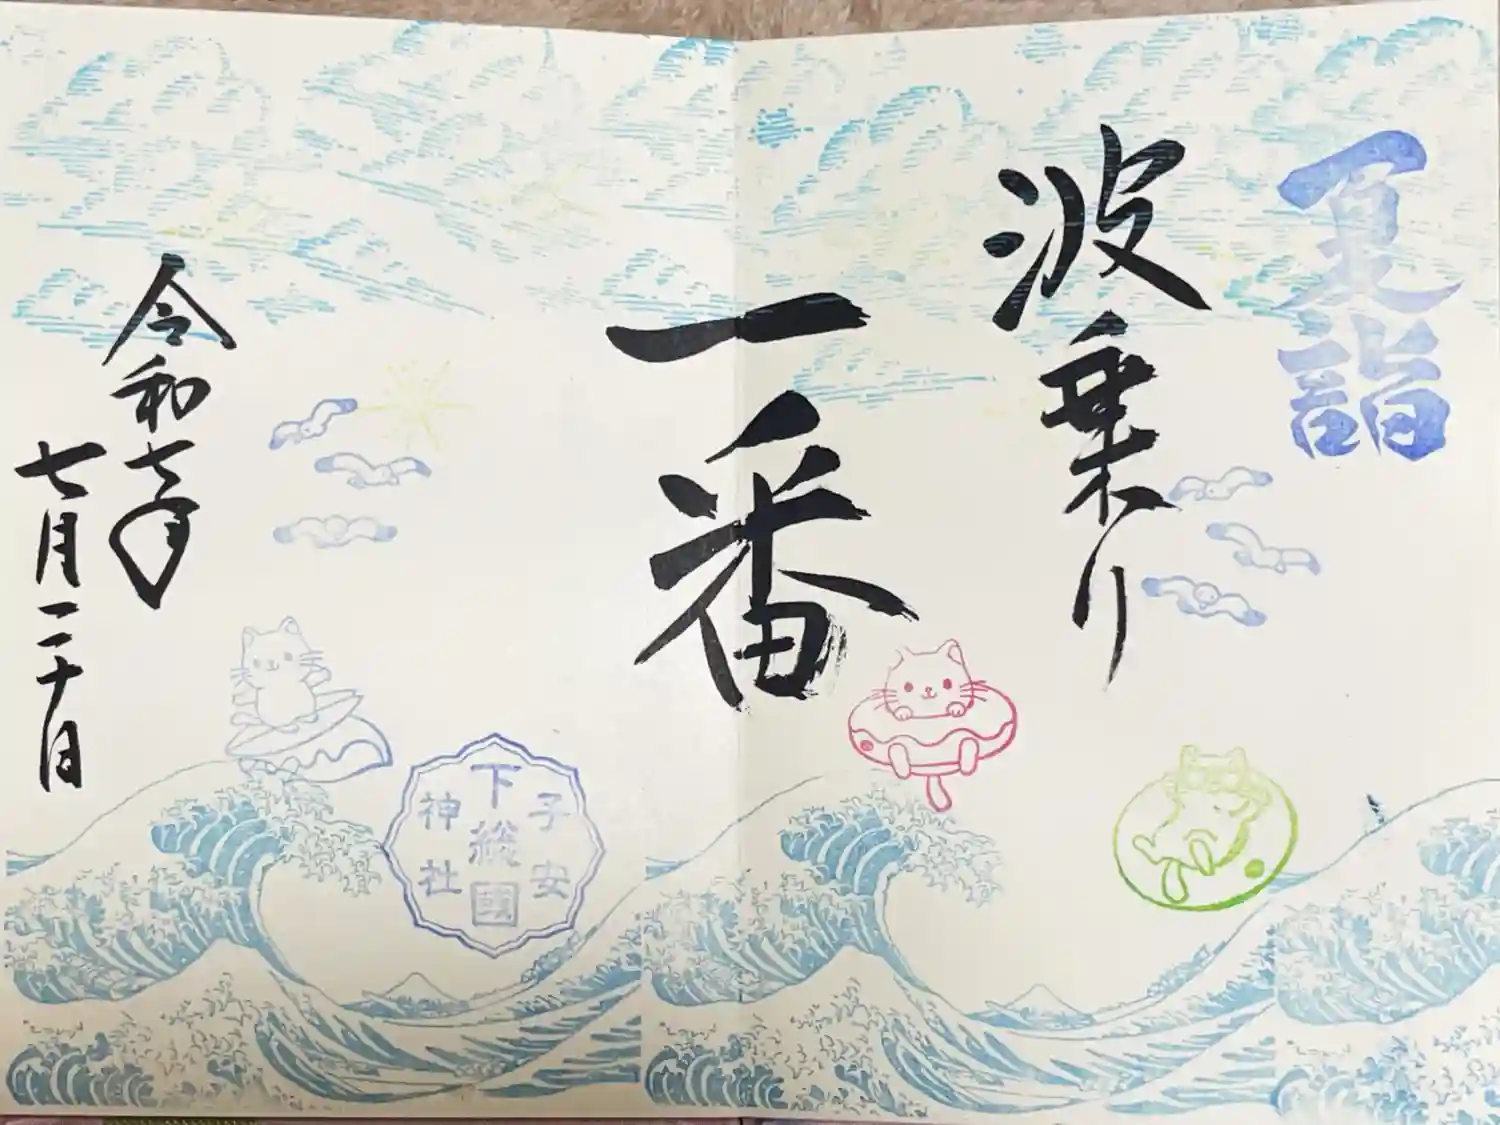 夏詣
波乗り
一番
子安
下総國
神社
令和七年
七月二十日